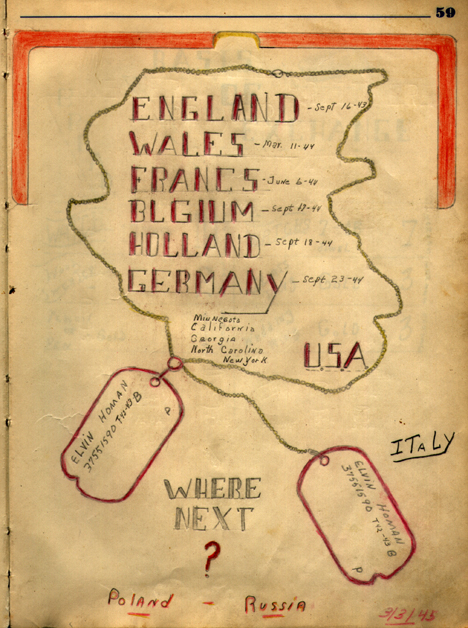 59
ENGLAND - Sept 16-43
WALES - Mar. 11-44
FRANCS - June 6-44
BLGIUM - Sept 17-44
HOLLAND - Sept 18-44
GERMANY - Sept 23-44
Minnesota
California
Georgia
North Carolina
New York
U.S.A
ELVIN HOMAN
37551590 T42-43 B
P
ITALY
ELVIN HOMAN
37551590 T42-43 B
P
WHERE
NEXT
?
Poland - Russia
3/3/45